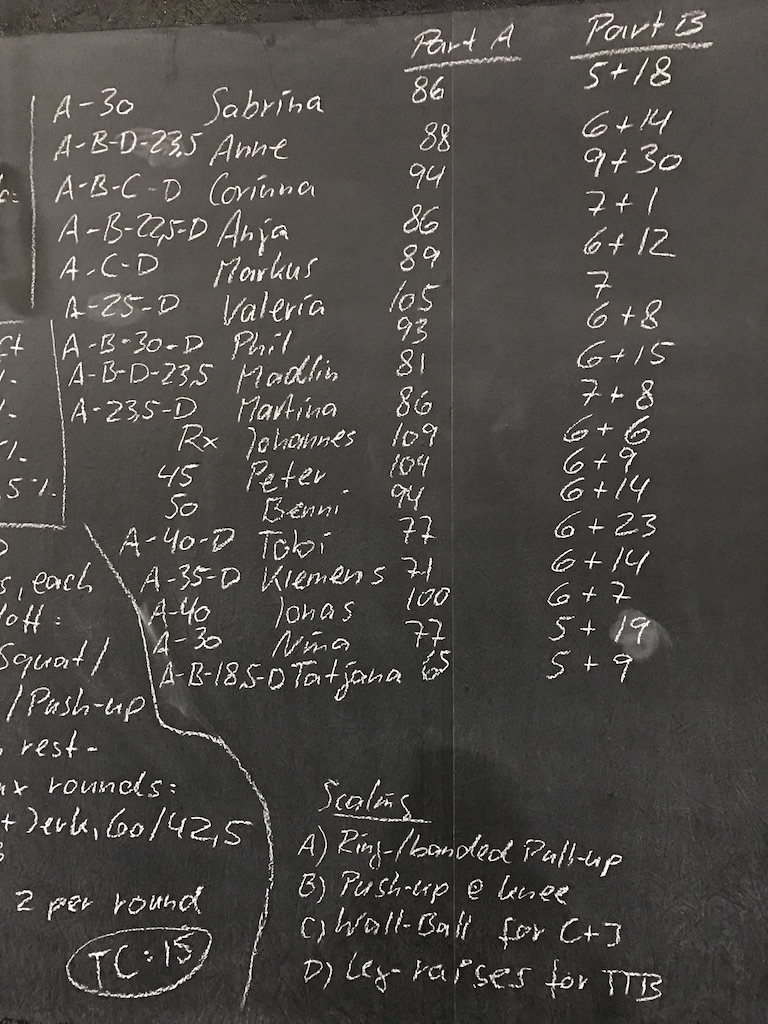 Part A Part B
A-30 Sabrina 86 5+18
A-B-D-23,5 Anne 88 6+14
A-B-C-D Corinna 94 9+30
A-B-22,5-D Anja 86 7+1
A-C-D Markus 89 6+12
A-25-D Valeria 105 7
A-B-30-D Phil 93 6+8
A-B-D-23,5 Madlin 81 6+15
A-23,5-D Martina 86 7+8
Rx Johannes 109 6+6
45 Peter 104 6+9
50 Benni 94 6+14
A-40-D Tobi 77 6+23
A-35-D Klemens 71 6+14
A-40 Jonas 100 6+7
A-30 Nina 77 5+19
A-B-18,5-D Tatjana 65 5+9
%.
5%.
s, each
Squat/
/Push-up
rest-
x rounds:
+ Jerk, 60/42,5
2 per round
TC: 15
Scaling
A) Ring-/banded Pull-up
B) Push-up @ knee
C) Wall-Ball for C+J
D) Leg-raises for TTB